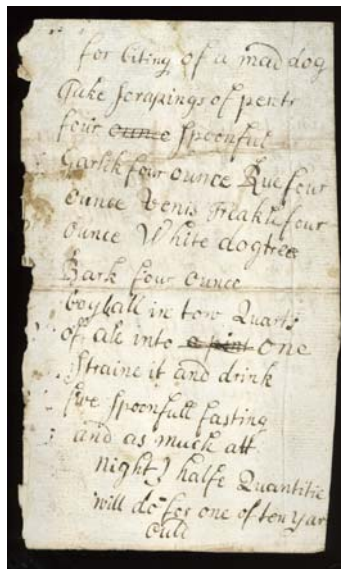 for biting of a mad dog
Take scrapings of pentr
four ounce spoonful
Garlik four ounce Rue four
ounce Venis Treakle four
ounce White dogtree
Bark four ounce
boyl all in tow Quarts
of ale into a pint one
straine it and drink
five spoonfull fasting
and as much att
night halfe Quantitie
will do for one of ten yar
ould